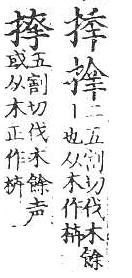 二五割切伐木餘
丨也从木作枿
五割切伐木餘声
或从木正作枿